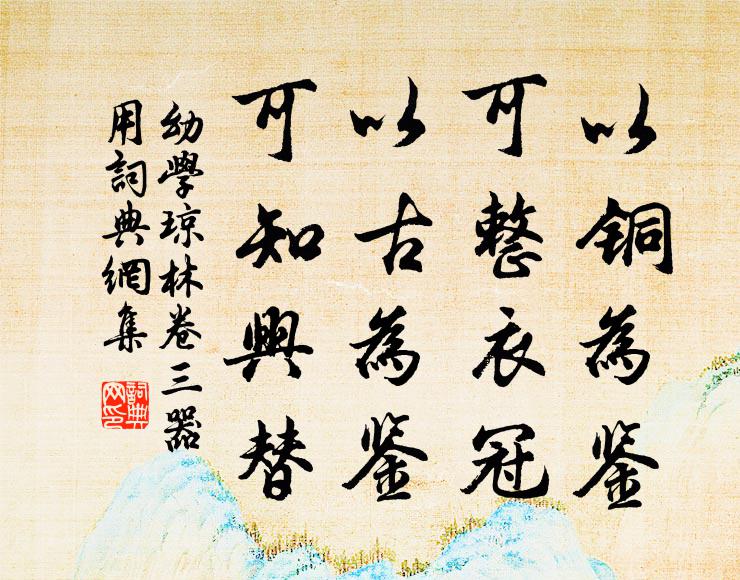 以铜為鉴
可整衣冠
以古為鉴
可知興替
幼學琼林卷三器
用詞典網集
詞典网印